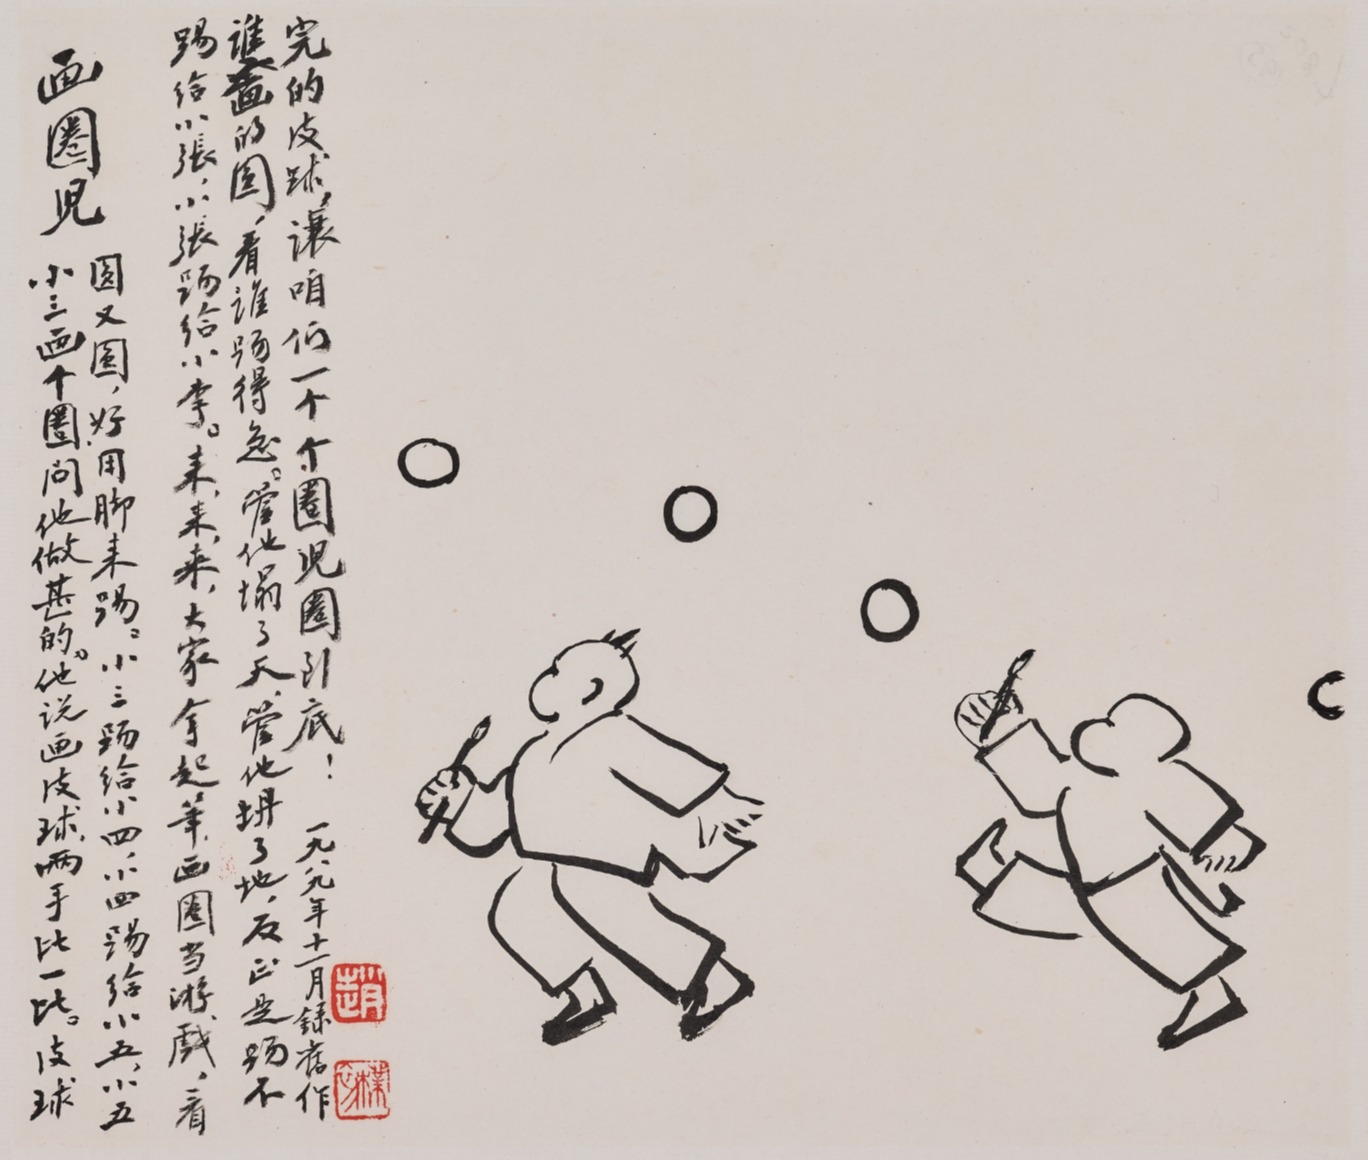 画圈児
小三画个圈问他做甚的。他说画皮球,两手比一比。皮球
圆又圆,好用脚来踢。小三踢给小四,小四踢给小五,小五
踢给小張,小張踢给小李。来,来,来,大家拿起筆,画圈当游戲,看
谁画的圆,看谁踢得急。管他塌了天,管他坍了地,反正是踢不
完的皮球,讓咱们一个个圈児圈到底!
一九八九年十一月録舊作
趙
樸初